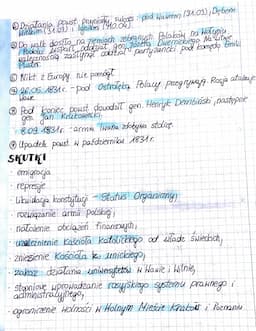 ③ Działania powst. pomyślne, sukces: pod Wawrem (31.03), Dębem
Wielkim (31.03) i Iganiami (10.04).
Do walk doszło na ziemiach zabranych Polaków na Wołyniu i
Podolu wsparł oddział gen. Józefa Dwernickiego. Na Litwie
walecznością zasłynął oddział partyzancki pod komendą Emilii
Plater.
Nikt z Europy nie pomógł
26.05.1831r. - pod Ostrołęką Polacy przegrywają. Rosja atakuje
Wawę.
Pod koniec powst. dowodził gen. Henryk Dembiński, następnie
gen. Jan Krukowiecki.
8.09.1831r. - armia ruska zdobywa stolicę.
Upadek powst. w październiku 1831r.
SKUTKI
- emigracja
- represje
- likwidacja konstytucji - Statut Organiczny,
- rozwiązanie armii polskiej,
- nałożenie obciążeń finansowych,
- uzależnienie Kościoła katolickiego od władz świeckich,
- zniesienie Kościoła k. unickiego,
- zakaz działania uniwersytetów w Wawie i Wilnie,
- stopniowe wprowadzanie rosyjskiego systemu prawnego i
administracyjnego,
- ograniczenie wolności w Wolnym Mieście Kraków i Poznaniu